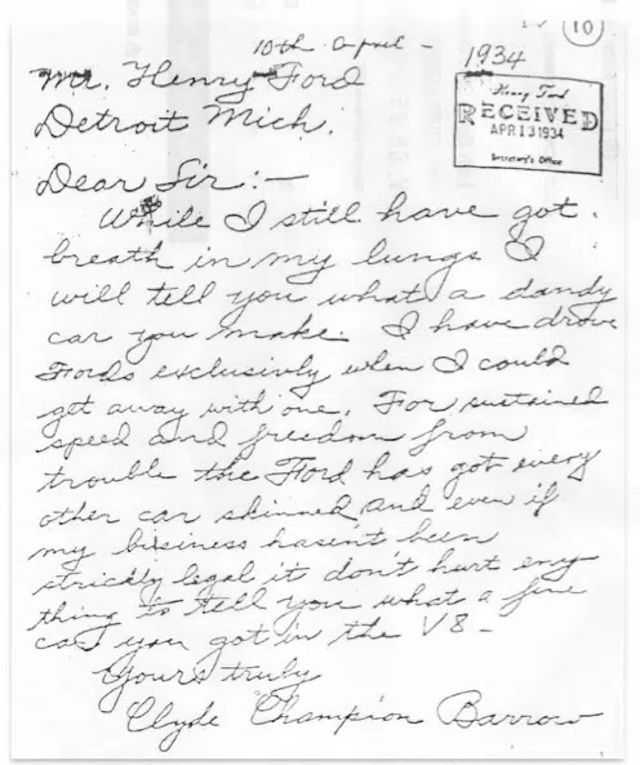 10
10th April - 1934
Mr. Henry Ford
Detroit Mich.
Henry Ford
RECEIVED
APR 13 1934
Secretary's Office
Dear Sir:-
While I still have got
breath in my lungs I
will tell you what a dandy
car you make. I have drove
Fords exclusivly when I could
get away with one. For sustained
speed and freedom from
trouble the Ford has got every
other car skinned and even if
my business hasen't been
strickly legal it don't hurt eny
thing to tell you what a fine
car you got in the V8 -
Yours truly
Clyde Champion Barrow